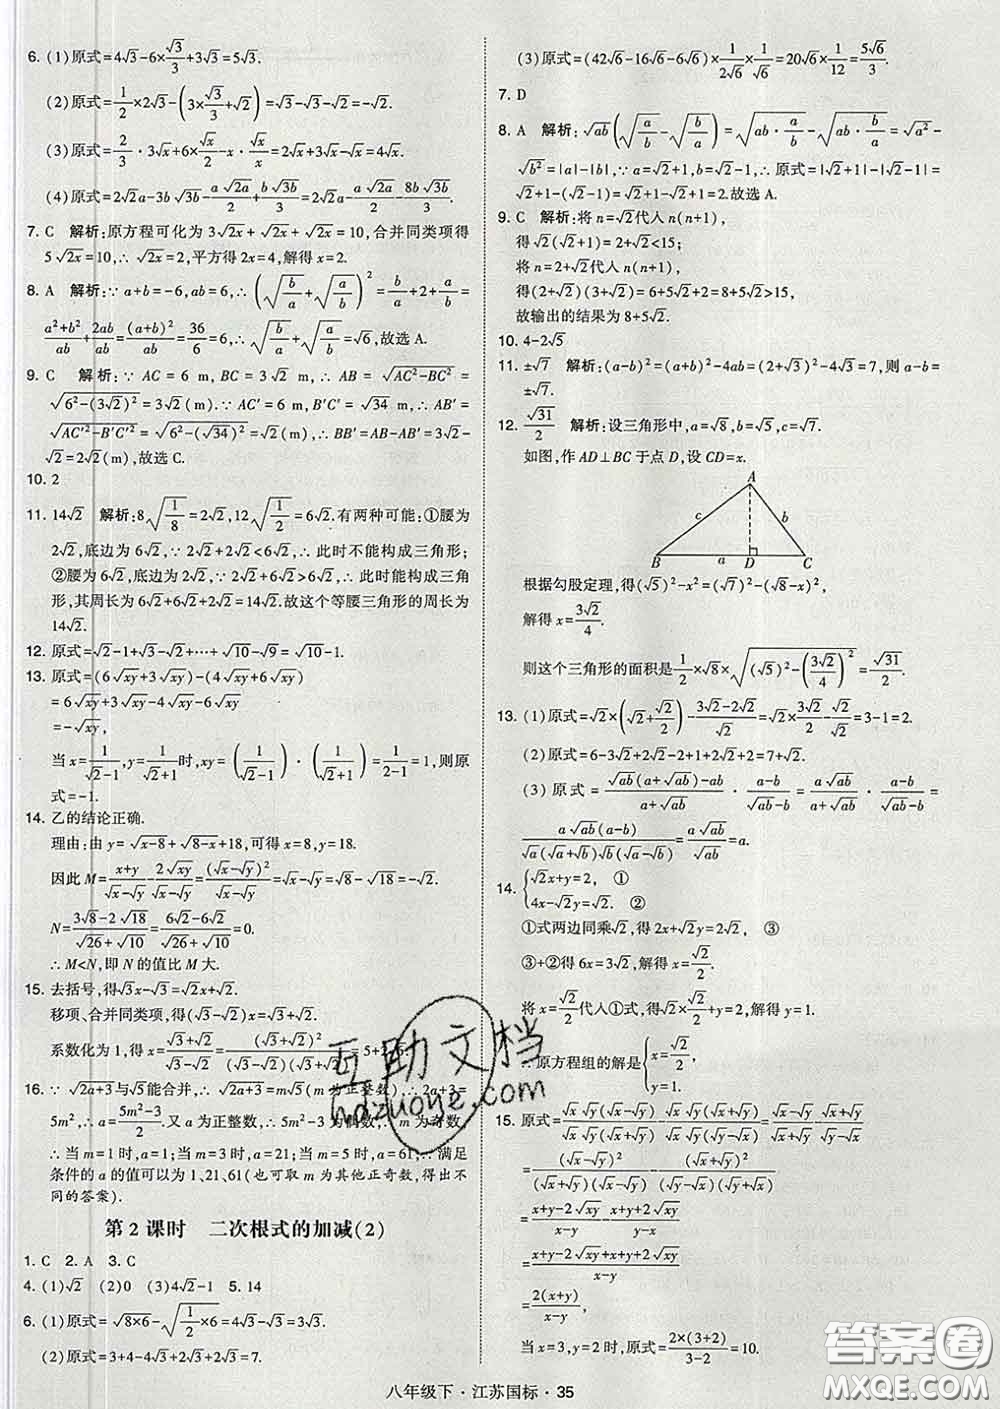 6. (1)原式=4√3-6×√3/3+3√3=5√3.
(2)原式=1/2×2√3-(3×√3/3+√2)=√3-√3-√2=-√2.
(3)原式=2/3·3√x+6×√x/2-x·√x/x=2√x+3√x-√x=4√x.
(4)原式=2√2a-3b√3b-a√2a/2+b√3b/2=2√2a-a√2a/2-8b√3b/2.
7. C 解析:原方程可化为3√2x+√2x+√2x=10,合并同类项得
5√2x=10,∴√2x=2,平方得2x=4,解得x=2.
8. A 解析:∵a+b=-6,ab=6,∴(√(b/a)+√(a/b))²=b/a+2+a/b=
(a²+b²)/ab+2ab/ab=(a+b)²/ab=36/6=6,∴√(b/a)+√(a/b)=√6,故选A.
9. C 解析:∵AC=6 m,BC=3√2 m,∴AB=√(AC²-BC²)=
√(6²-(3√2)²)=3√2(m).∵AC′=6 m,B′C′=√34 m,∴AB′=
√(AC′²-B′C′²)=√(6²-(√34)²)=√2(m),∴BB′=AB-AB′=3√2-
√2=2√2(m),故选C.
10. 2
11. 14√2 解析:8√(1/8)=2√2,12√(1/2)=6√2.有两种可能:①腰为
2√2,底边为6√2,∵2√2+2√2<6√2,∴此时不能构成三角形;
②腰为6√2,底边为2√2,∵6√2+2√2>6√2,∴此时能构成三角
形,其周长为6√2+6√2+2√2=14√2.故这个等腰三角形的周长为
14√2.
12. 原式=√2-1+√3-√2+…+√10-√9=√10-1.
13. 原式=(6√xy+3√xy)-(4√xy+6√xy)
=6√xy+3√xy-4√xy-6√xy
=-√xy,
当x=1/(√2-1),y=1/(√2+1)时,xy=(1/(√2-1))·(1/(√2+1))=1/(2-1)=1,则原
式=-1.
14. 乙的结论正确.
理由:由y=√(x-8)+√(8-x)+18,可得x=8,y=18.
因此M=(x+y)/(√x-√y)-2√xy/(√x-√y)=(√x-√y)²/(√x-√y)=√x-√y=√8-√18=-√2.
N=(3√8-2√18)/(√26+√10)=(6√2-6√2)/(√26+√10)=0.
∴M<N,即N的值比M大.
15. 去括号,得√3x-√3=√2x+√2.
移项、合并同类项,得(√3-√2)x=√3+√2.
系数化为1,得x=(√3+√2)/(√3-√2)=(√3+√2)²/(√3-√2)(√3+√2)=5+2√6.
16. ∵√(2a+3)与√5能合并,∴√(2a+3)=m√5(m为正整数),∴2a+3=
5m²,∴a=(5m²-3)/2.又a为正整数,∴5m²-3为偶数,∴m为奇数,
∴当m=1时,a=1;当m=3时,a=21;当m=5时,a=61,∴满足
条件的a的值可以为1、21、61(也可以m为其他正奇数,得出不
同的答案).
第2课时 二次根式的加减(2)
1. C 2. A 3. C
4. (1)√2 (2)0 (3)4√2-1 5. 14
6. (1)原式=√(8×6)-√(1/2×6)=4√3-√3=3√3.
(2)原式=3+4-4√3-2√3+2√3=7.
(3)原式=(42√6-16√6-6√6)×1/(2√6)×1/√6=20√6×1/12=5√6/3.
7. D
8. A 解析:√ab(√(a/b)-√(b/a))=√(ab·a/b)-√(ab·b/a)=√a²-
√b²=|a|-|b|,∵a=√2+1,b=√2-1,∴原式=|√2+1|-|√2-1|=
√2+1-(√2-1)=√2+1-√2+1=2.故选A.
9. C 解析:将n=√2代入n(n+1),
得√2(√2+1)=2+√2<15;
将n=2+√2代入n(n+1),
得(2+√2)(3+√2)=6+5√2+2=8+5√2>15,
故输出的结果为8+5√2.
10. 4-2√5
11. ±√7 解析:(a-b)²=(a+b)²-4ab=(2+√3)²-4√3=7,则a-b=
±√7.
12. √31/2 解析:设三角形中,a=√8,b=√5,c=√7.
如图,作AD⊥BC于点D,设CD=x.
A
c b
B a D C
根据勾股定理,得(√5)²-x²=(√7)²-(√8-x)²,
解得x=3√2/4.
则这个三角形的面积是1/2×√8×√((√5)²-(3√2/4)²)=√31/2.
13. (1)原式=√2×(√2+√2/2)-(3√2-2√2)/√2=√2×3√2/2-√2/√2=3-1=2.
(2)原式=6-3√2+2√2-2+1+2√2+2=7+√2.
(3)原式=(√ab(a+√ab)-ab)/(a+√ab)·(a-b)/(√ab-b)=a√ab/(a+√ab)·(a-b)/(√ab-b)=
a√ab(a-b)/(√a(√a+√b)√b(√a-√b))=a√ab/√ab=a.
14. {√2x+y=2, ①
4x-√2y=√2. ②
①式两边同乘√2,得2x+√2y=2√2, ③
③+②得6x=3√2,解得x=√2/2.
将x=√2/2代入①式,得√2×√2/2+y=2,解得y=1.
∴原方程组的解是{x=√2/2,
y=1.
15. 原式=√x√y(√x-√y)/√x√y(√x+√y)+√x√y(√x+√y)/√x√y(√x-√y)
=(√x-√y)²/(√x+√y)(√x-√y)+(√x+√y)²/(√x-√y)(√x+√y)
=(x+y-2√xy)/(x-y)+(x+y+2√xy)/(x-y)
=(x+y-2√xy+x+y+2√xy)/(x-y)
=2(x+y)/(x-y),
当x=3,y=2时,原式=2×(3+2)/(3-2)=10.
八年级下·江苏国标·35
互助文档
hdzuoye.com
答案圈
MXQE.COM